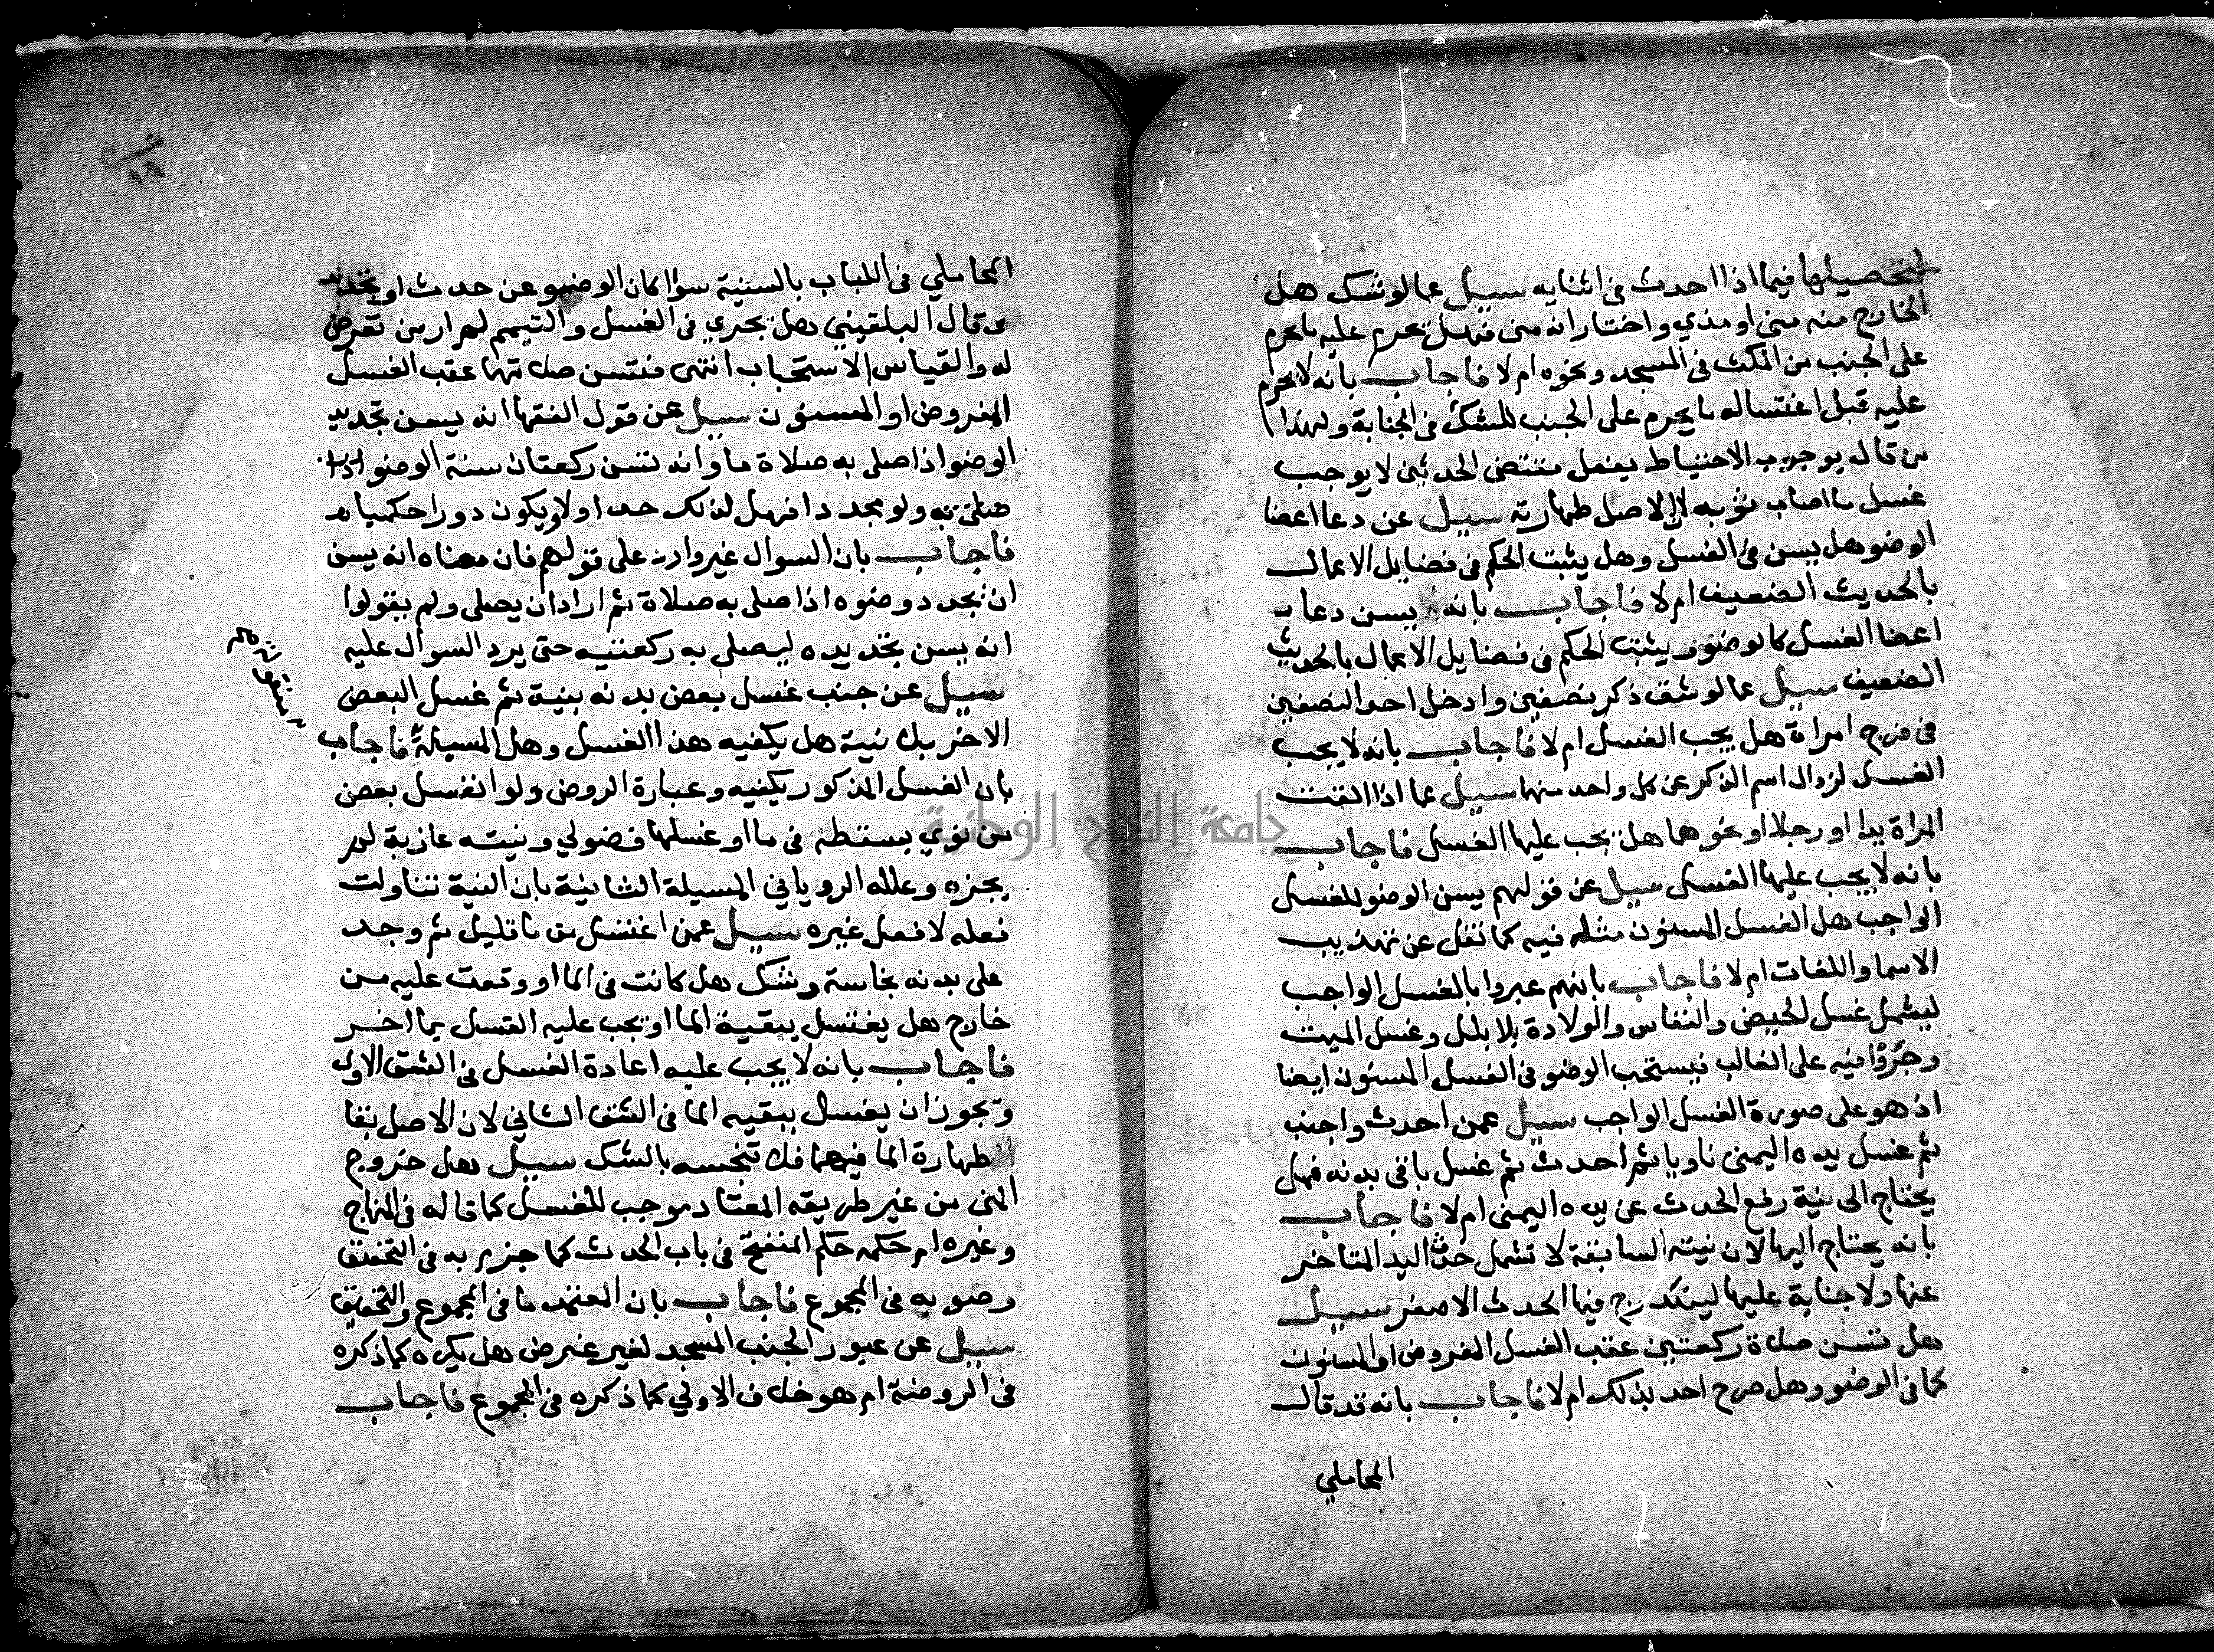 لتحصيلها فيما اذا احدث في اثنايه سيل عما لو شك هل
الخارج منه مني او مذي واختار انه مني فهل تحرم عليه ما يحرم
على الجنب من المكث في المسجد ونحوه ام لا فاجاب بانه لا يحرم
عليه قبل اغتساله ما يحرم على الجنب للشك في الجنابة ولهذا
من قال بوجوب الاحتياط بفعل مقتضى الحدثين لا يوجب
غسل ما اصاب ثوبه لان الاصل طهارته سيل عن دعا اعضا
الوضو هل يسن في الغسل وهل يثبت الحكم في فضايل الاعمال
بالحديث الضعيف ام لا فاجاب بانه يسن دعا
اعضا الغسل كالوضو ويثبت الحكم في فضايل الاعمال بالحديث
الضعيف سيل عما لو شق ذكر نصفين وادخل احد النصفين
في فرج امراة هل يجب الغسل ام لا فاجاب بانه لا يجب
الغسل لزوال اسم الذكر عن كل واحد منهما سيل عما اذا القت
المراة يدا او رجلا او نحوهما هل يجب عليها الغسل فاجاب
بانه لا يجب عليها الغسل سيل عن قولهم يسن الوضو للغسل
الواجب هل الغسل المسنون مثله فيه كما نقل عن تهذيب
الاسما واللغات ام لا فاجاب بانهم عبروا بالغسل الواجب
ليشمل غسل الحيض والنفاس والولادة بلا بلل وغسل الميت
وجروا فيه على الغالب فيستحب الوضو في الغسل المسنون ايضا
اذ هو على صورة الغسل الواجب سيل عمن احدث واجنب
ثم غسل يده اليمنى ناويا ثم احدث ثم غسل باقي بدنه فهل
يحتاج الى نية رفع الحدث عن يده اليمنى ام لا فاجاب
بانه يحتاج اليها لان نيته السابقة لا تشمل حدث اليد المتاخر
عنها ولا جنابة عليها ليندرج فيها الحدث الاصغر سيل
هل تسن صلاة ركعتين عقب الغسل المفروض او المسنون
كما في الوضو وهل صرح احد بذلك ام لا فاجاب بانه قد قال
المحاملي
١٨
المحاملي في اللباب بالسنية سوا كان الوضو عن حدث او تجديد
قال البلقيني هل يجري في الغسل والتيمم لم ار من تعرض
له والقياس الاستحباب انتهى فتسن صلاتهما عقب الغسل
المفروض او المسنون سيل عن قول الفقها انه يسن تجديد
الوضو اذا صلى به صلاة ما وانه تسن ركعتان سنة الوضو اذا
صلى به ولو مجددا فهل لذلك حد او لا ويكون دورا حكميا
فاجاب بان السوال غير وارد على قولهم فان معناه انه يسن
ان تجدد وضوه اذا صلى به صلاة ثم اراد ان يصلي ولم يقولوا
انه يسن تجديده ليصلي به ركعتيه حتى يرد السوال عليه
سيل عن جنب غسل بعض بدنه بنية ثم غسل البعض
الاخر بلا نية هل يكفيه هذا الغسل وهل المسيلة فاجاب
بان الغسل المذكور يكفيه وعبارة الروض ولو انغسل بعض
من نوى بسقطة في ما او غسلها فضولي ونيته عازبة لم
يجزه وعلله الروياني المسيلة الثانية بان النية تناولت
فعله لا فعل غيره سيل عمن اغتسل من ما قليل ثم وجد
على بدنه نجاسة وشك هل كانت في الما او وقعت عليه من
خارج هل يغتسل ببقية الما او يجب عليه الغسل بما اخر
فاجاب بانه لا يجب عليه اعادة الغسل في الشق الاول
ويجوز ان يغسل ببقيه الما في الشق الثاني لان الاصل بقا
طهارة الما فيهما فلا تنجسه بالشك سيل هل خروج
المنى من غير طريقه المعتاد موجب للغسل كما قاله في المنهاج
وغيره ام حكمه حكم المنفتح في باب الحدث كما جزم به في التحقيق
وضوبه في المجموع فاجاب بان المعتمد ما في المجموع والتحقيق
سيل عن عبور الجنب المسجد لغير غرض هل يكره كما ذكره
في الروضة ام هو خلاف الاولى كما ذكره في المجموع فاجاب
جامعة النجاح الوطنية